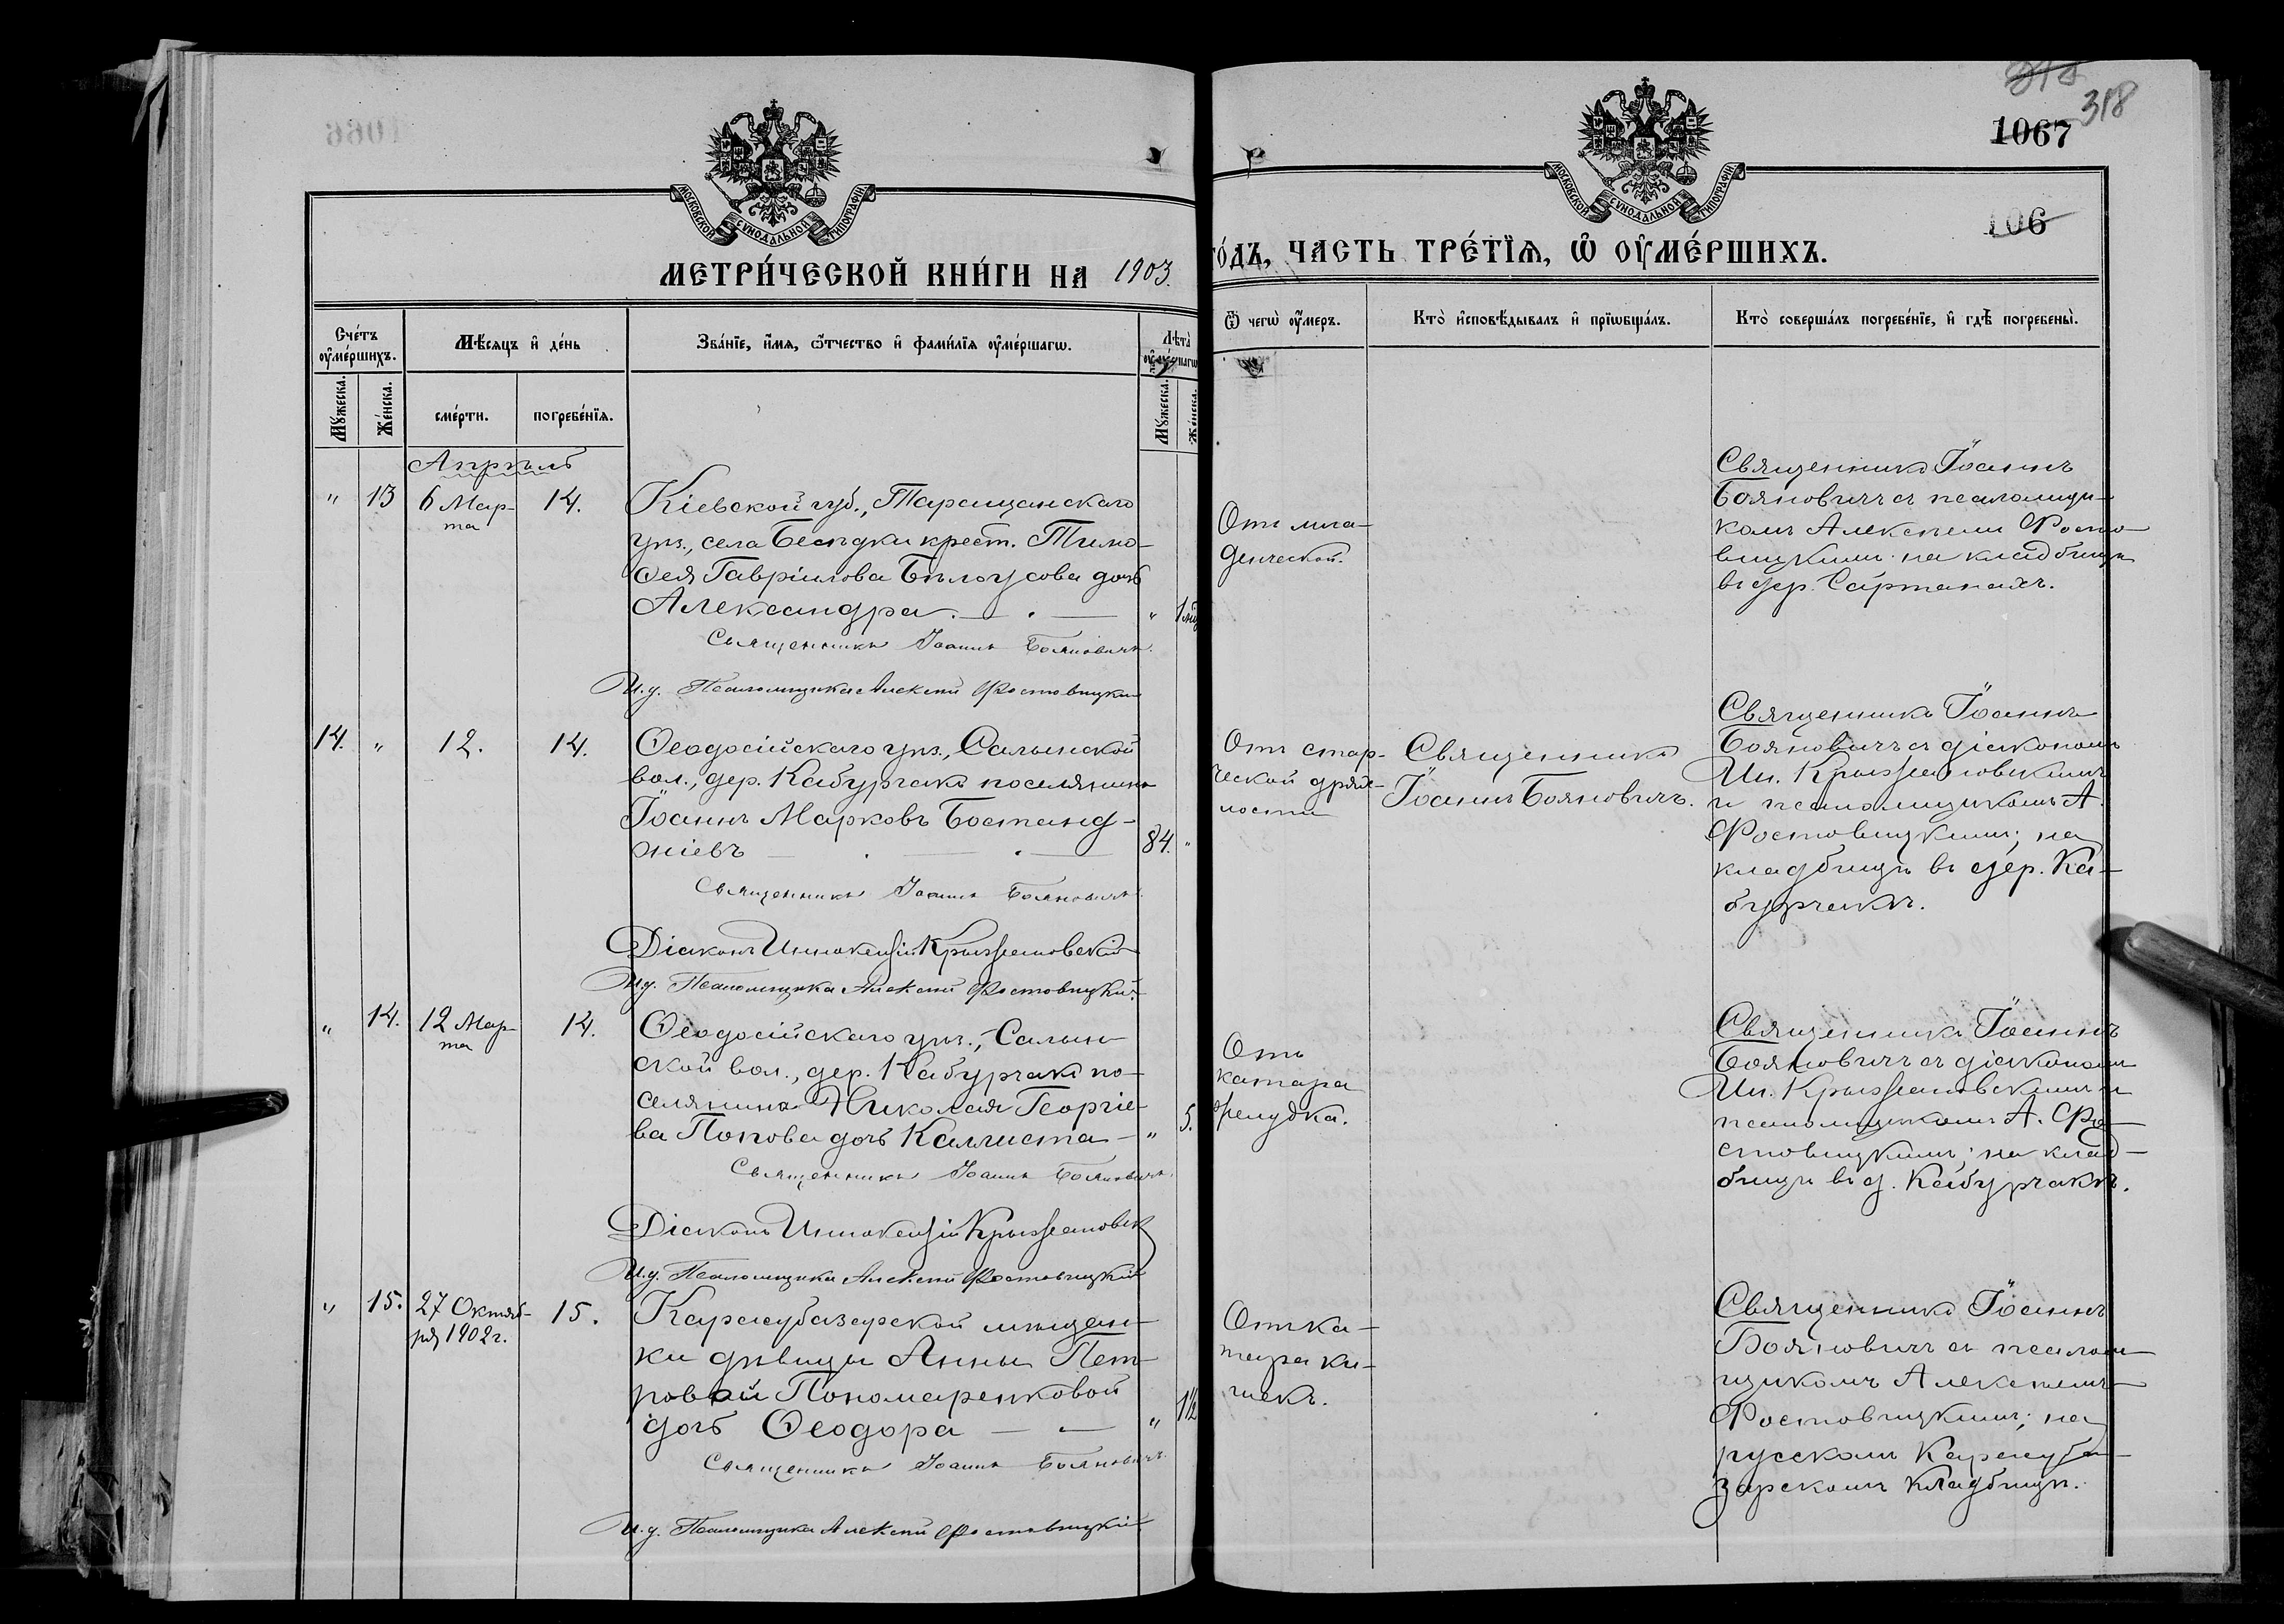 318
1067
106
МОСКОВСКОЙ СѴНОДАЛЬНОЙ ТИПОГРАФІИ
МОСКОВСКОЙ СѴНОДАЛЬНОЙ ТИПОГРАФІИ
МЕТРИ́ЧЕСКОЙ КНИ́ГИ НА 1903.
ГО́ДЪ, ЧАСТЬ ТРЕ́ТЇѦ, Ѡ ОУМЕ́РШИХЪ.
Сче́тъ оуме́ршихъ.
Мѣ́сяцъ и де́нь
Зва́нїе, и́мя, ѻ́тчество и фами́лїя оуме́ршагѡ.
Лѣта̀ оуме́ршагѡ
Ѿ чегѡ̀ оу́меръ.
Кто̀ исповѣ́дывалъ и прїѡбща́лъ.
Кто̀ соверша́лъ погребе́нїе, и гдѣ̀ погребены̀.
Му́жеска.
Же́нска.
сме́рти.
погребе́нїя.
Му́жеска.
Же́нска.
Апрѣль
" 13 6 Мар-
та
14.
Кіевской губ., Таращанскаго
уѣз., села Бесѣдки крест. Тимо-
ѳея Гавріилова Бѣлоусова дочь
Александра. — . — "
Священникъ Іоаннъ Бояновичъ.
И.д. Псаломщика Алексѣй Фостовицкій
Отъ мла-
денческой.
Священникъ Іоаннъ
Бояновичъ съ псаломщи-
комъ Алексѣемъ Фосто-
вицкимъ на кладбищѣ
въ дер. Сартанахъ.
14. " 12. 14.
Ѳеодосійскаго уѣз., Салынской
вол., дер. Кабурчакъ поселянинъ
Іоаннъ Марковъ Бостанд-
жіевъ — . — . — 84. "
Священникъ Іоаннъ Бояновичъ.
Діаконъ Иннокентій Крыжановскій
И.д. Псаломщика Алексѣй Фостовицкій.
Отъ стар-
ческой дрях-
лости
Священникъ
Іоаннъ Бояновичъ.
Священникъ Іоаннъ
Бояновичъ съ діакономъ
Ин. Крыжановскимъ
и псаломщикомъ А.
Фостовицкимъ; на
кладбищѣ въ дер. Ка-
бурчакѣ.
" 14. 12 Мар-
та
14.
Ѳеодосійскаго уѣз., Салын-
ской вол., дер. Кабурчакъ по-
селянина Николая Георгіе-
ва Попова дочь Каллиста — " 5.
Священникъ Іоаннъ Бояновичъ.
Діаконъ Иннокентій Крыжановск
И.д. Псаломщика Алексѣй Фостовицкій
Отъ
катара
желудка.
Священникъ Іоаннъ
Бояновичъ съ діакономъ
Ин. Крыжановскимъ и
псаломщикомъ А. Фо-
стовицкимъ; на клад-
бищѣ въ д. Кабурчакѣ.
" 15. 27 Октяб-
ря 1902 г.
15.
Карасубазарской мѣщан-
ки дѣвицы Анны Пет-
ровой Пономаренковой
дочь Ѳеодора — — " 1½
Священникъ Іоаннъ Бояновичъ.
И.д. Псаломщика Алексѣй Фостовицкій.
Отъ ка-
тара ки-
шекъ.
Священникъ Іоаннъ
Бояновичъ съ псалом-
щикомъ Алексѣемъ
Фостовицкимъ; на
русскомъ Карасуба-
зарскомъ кладбищѣ.